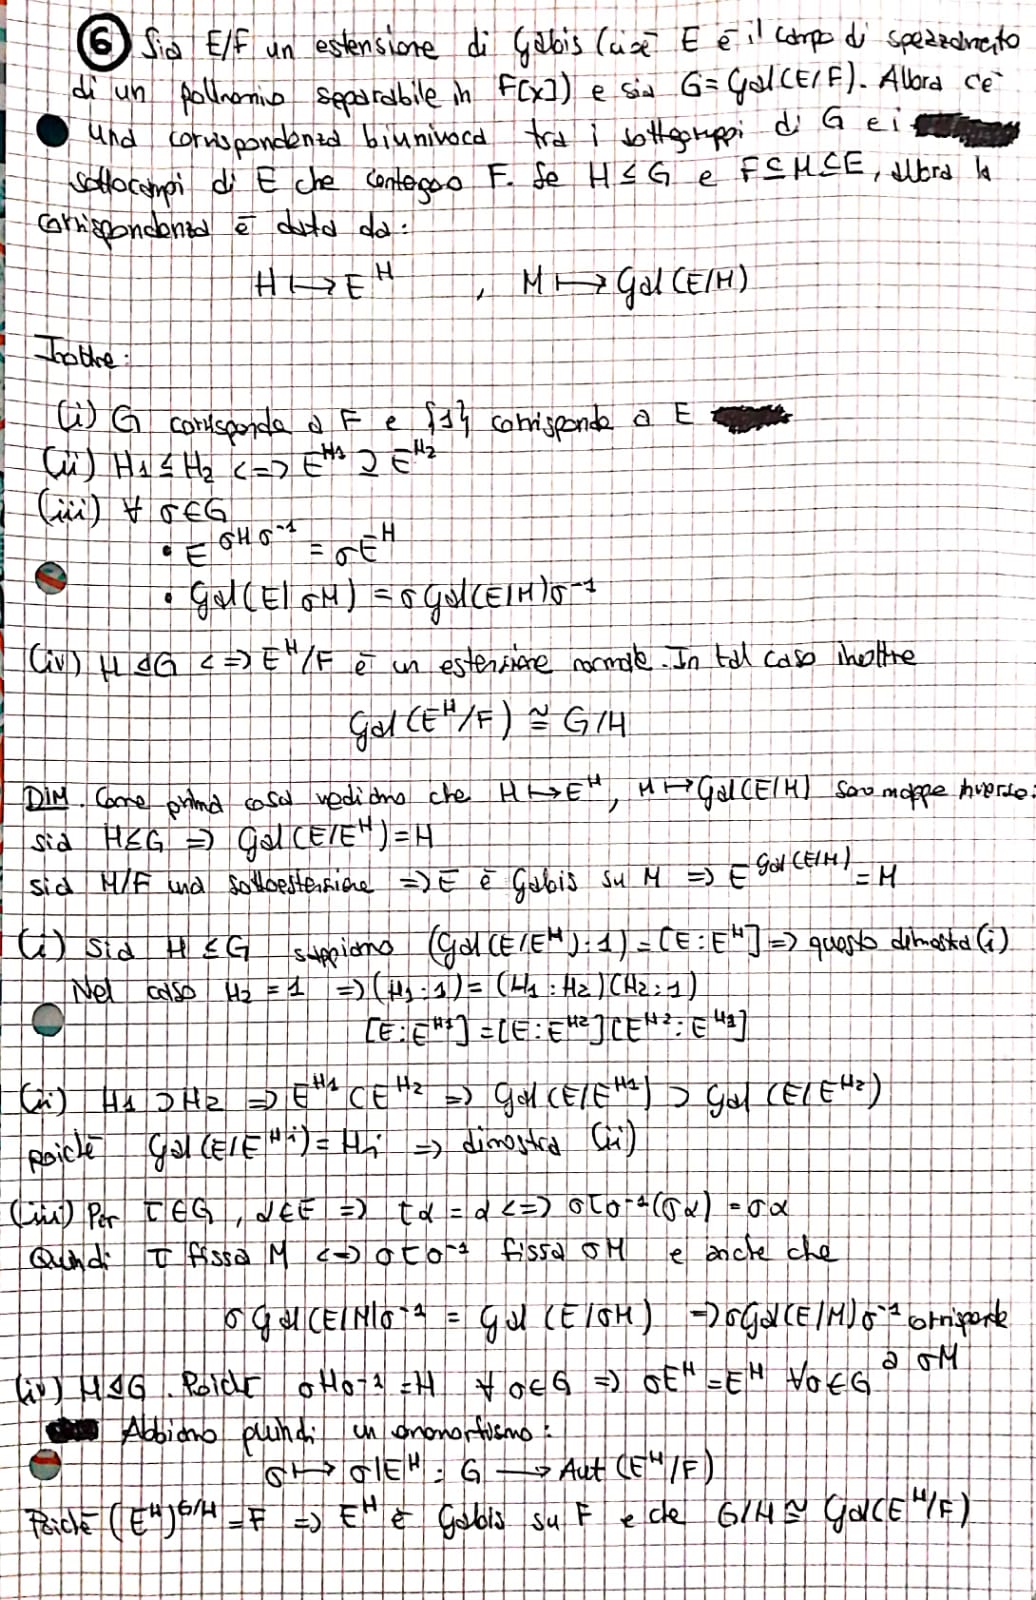 ⑥ Sia E/F un estensione di Galois (cioè E è il campo di spezzamento
di un polinomio separabile in F[x]) e sia G = Gal(E/F). Allora c'è
una corrispondenza biunivoca tra i sottogruppi di G e i
sottocampi di E che contengono F. Se H ≤ G e F ⊆ M ⊆ E, allora la
corrispondenza è data da:
H ↦ E^H , M ↦ Gal(E/M)
Inoltre:
(i) G corrisponde a F e {1} corrisponde a E
(ii) H1 ≤ H2 <=> E^H1 ⊇ E^H2
(iii) ∀ σ∈G
• E^σHσ^-1 = σE^H
• Gal(E/σM) = σGal(E/M)σ^-1
(iv) H ⊴ G <=> E^H/F è un estensione normale. In tal caso inoltre
Gal(E^H/F) ≅ G/H
DIM. Come prima cosa vediamo che H ↦ E^H, M ↦ Gal(E/M) sono mappe inverse:
sia H≤G => Gal(E/E^H) = H
sia M/F una sottoestensione => E è Galois su M => E^Gal(E/M) = M
(i) Sia H ≤ G sappiamo (Gal(E/E^H):1) = [E:E^H] => questo dimostra (i)
Nel caso H2 = 1 => (H1:1) = (H1:H2)(H2:1)
[E:E^H1] = [E:E^H2][E^H2:E^H1]
(ii) H1 ⊃ H2 => E^H1 ⊂ E^H2 => Gal(E/E^H1) ⊃ Gal(E/E^H2)
poiché Gal(E/E^Hi) = Hi => dimostra (ii)
(iii) Per τ∈G, α∈E => τα = α <=> στσ^-1(σα) = σα
Quindi τ fissa M <=> στσ^-1 fissa σM e anche che
σGal(E/M)σ^-1 = Gal(E/σM) => σGal(E/M)σ^-1 corrisponde
a σM
(iv) H⊴G. Poiché σHσ^-1 = H ∀ σ∈G => σE^H = E^H ∀σ∈G
Abbiamo quindi un omomorfismo:
σ ↦ σ|E^H : G → Aut(E^H/F)
Poiché (E^H)^G/H = F => E^H è Galois su F e che G/H ≅ Gal(E^H/F)